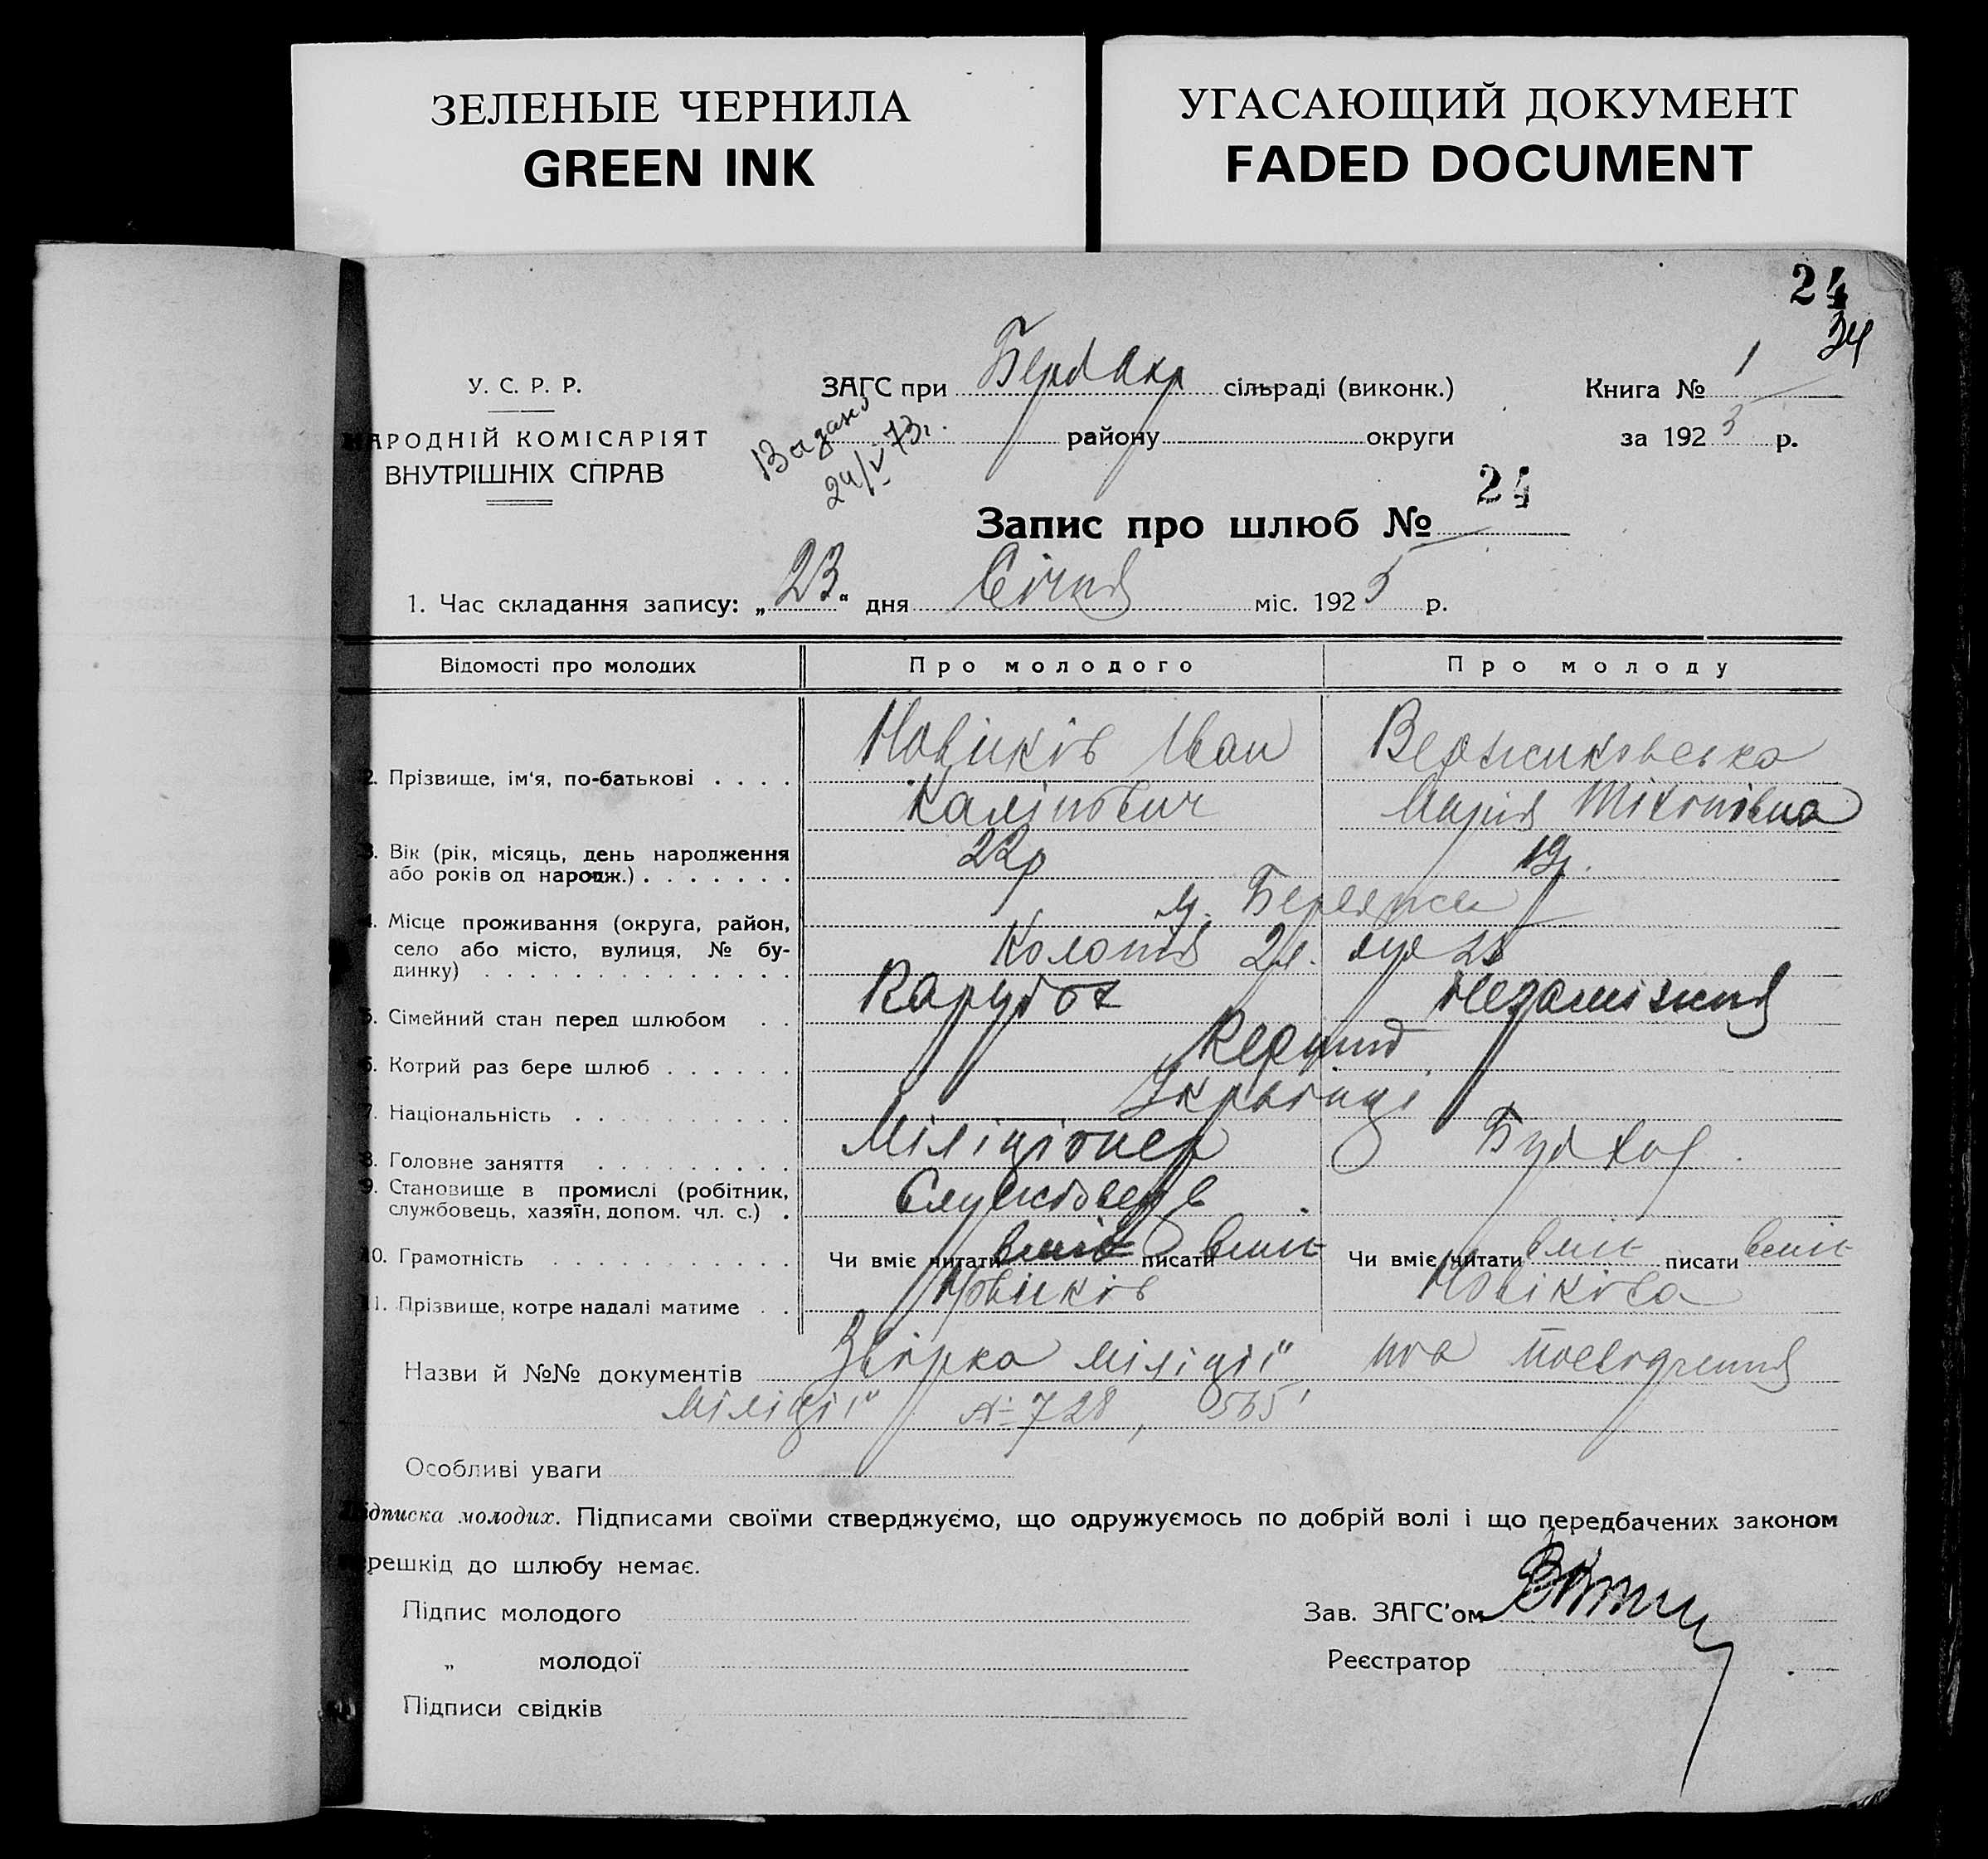 ЗЕЛЕНЫЕ ЧЕРНИЛА
GREEN INK
УГАСАЮЩИЙ ДОКУМЕНТ
FADED DOCUMENT
24
34
У. С. Р. Р.
НАРОДНІЙ КОМІСАРІЯТ
ВНУТРІШНІХ СПРАВ
ЗАГС при Берд Окр сільраді (виконк.)
району округи
Книга № 1
за 1925 р.
24/V 73г.
Запис про шлюб № 24
1. Час складання запису: „23“ дня Січня міс. 1925 р.
Відомості про молодих Про молодого Про молоду
2. Прізвище, ім'я, по-батькові Новиків Іван
Марія
3. Вік (рік, місяць, день народження або років од народж.) 22р 19р.
4. Місце проживання (округа, район, село або місто, вулиця, № будинку) м. Бердянськ
Колонія
5. Сімейний стан перед шлюбом Парубок Незаміжня
6. Котрий раз бере шлюб Перший
7. Національність Українці
8. Головне заняття Міліціонер
9. Становище в промислі (робітник, службовець, хазяїн, допом. чл. с.) Службовець
10. Грамотність Чи вміє читати вміє писати вміє Чи вміє читати вміє писати вміє
11. Прізвище, котре надалі матиме Новиків Новікова
Назви й №№ документів міліції
міліції № 728, 565
Особливі уваги
Підписка молодих. Підписами своїми стверджуємо, що одружуємось по добрій волі і що передбачених законом
перешкід до шлюбу немає.
Підпис молодого
„ молодої
Підписи свідків
Зав. ЗАГС'ом
Реєстратор